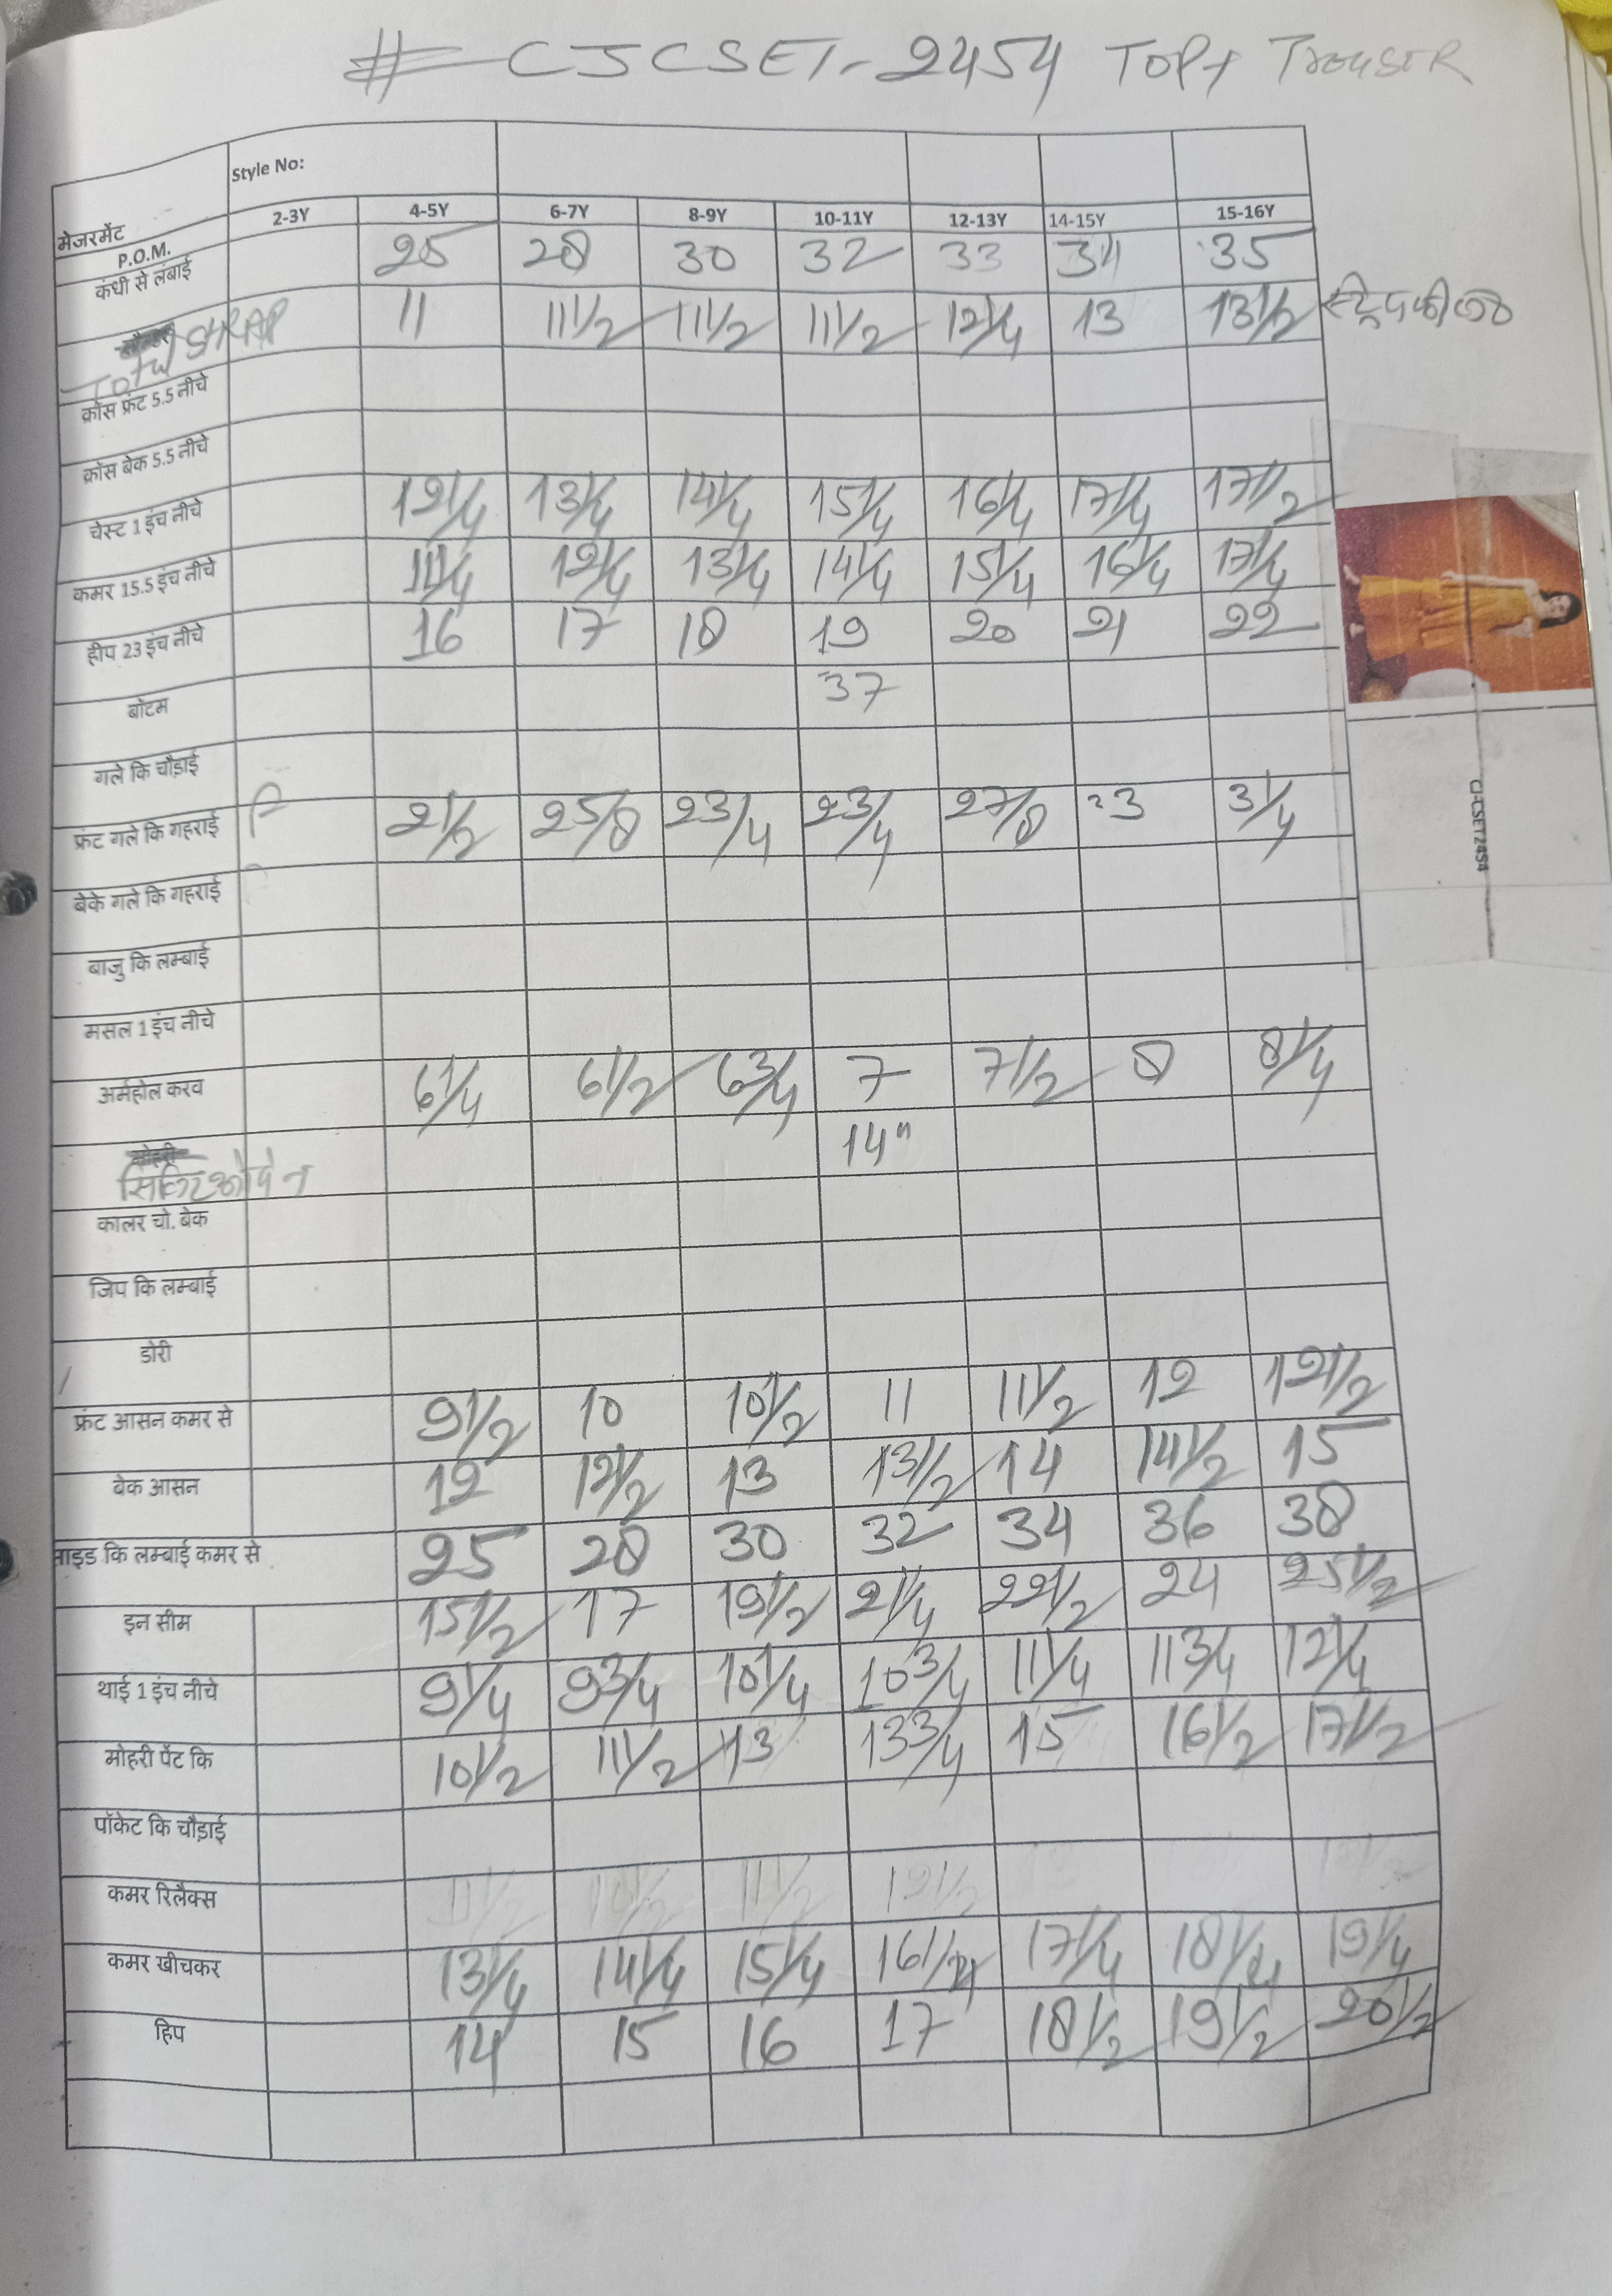 # CJCSET-2454 TOP+ TROUSER
Style No:
मेजरमेंट P.O.M. 2-3Y 4-5Y 6-7Y 8-9Y 10-11Y 12-13Y 14-15Y 15-16Y
कंधी से लंबाई 25 28 30 32 33 34 35
Total STRAP 11 11 1/2 11 1/2 11 1/2 12 1/4 13 13 1/2
क्रॉस फ्रंट 5.5 नीचे
क्रॉस बेक 5.5 नीचे
चेस्ट 1 इंच नीचे 12 1/4 13 1/4 14 1/4 15 1/4 16 1/4 17 1/4 17 1/2
कमर 15.5 इंच नीचे 11 1/4 12 1/4 13 1/4 14 1/4 15 1/4 16 1/4 17 1/4
हीप 23 इंच नीचे 16 17 18 19 20 21 22
बॉटम 37
गले कि चौड़ाई
फ्रंट गले कि गहराई 2 1/2 2 5/8 2 3/4 2 3/4 2 7/8 3 3 1/4
बेके गले कि गहराई
बाजु कि लम्बाई
मसल 1 इंच नीचे
अर्महोल करव 6 1/4 6 1/2 6 3/4 7 7 1/2 8 8 1/4
मोहरी 14"
कालर चो. बेक
जिप कि लम्बाई
डोरी
फ्रंट आसन कमर से 9 1/2 10 10 1/2 11 11 1/2 12 12 1/2
बेक आसन 12 12 1/2 13 13 1/2 14 14 1/2 15
साइड कि लम्बाई कमर से 25 28 30 32 34 36 38
इन सीम 15 1/2 17 19 1/2 21/4 22 1/2 24 25 1/2
थाई 1 इंच नीचे 9 1/4 9 3/4 10 1/4 10 3/4 11 1/4 11 3/4 12 1/4
मोहरी पेंट कि 10 1/2 11 1/2 13 13 3/4 15 16 1/2 17 1/2
पॉकेट कि चौड़ाई
कमर रिलैक्स 12 1/2
कमर खीचकर 13 1/4 14 1/4 15 1/4 16 1/4 17 1/4 18 1/4 19 1/4
हिप 14 15 16 17 18 1/2 19 1/2 20 1/2
CJ-CSET2454